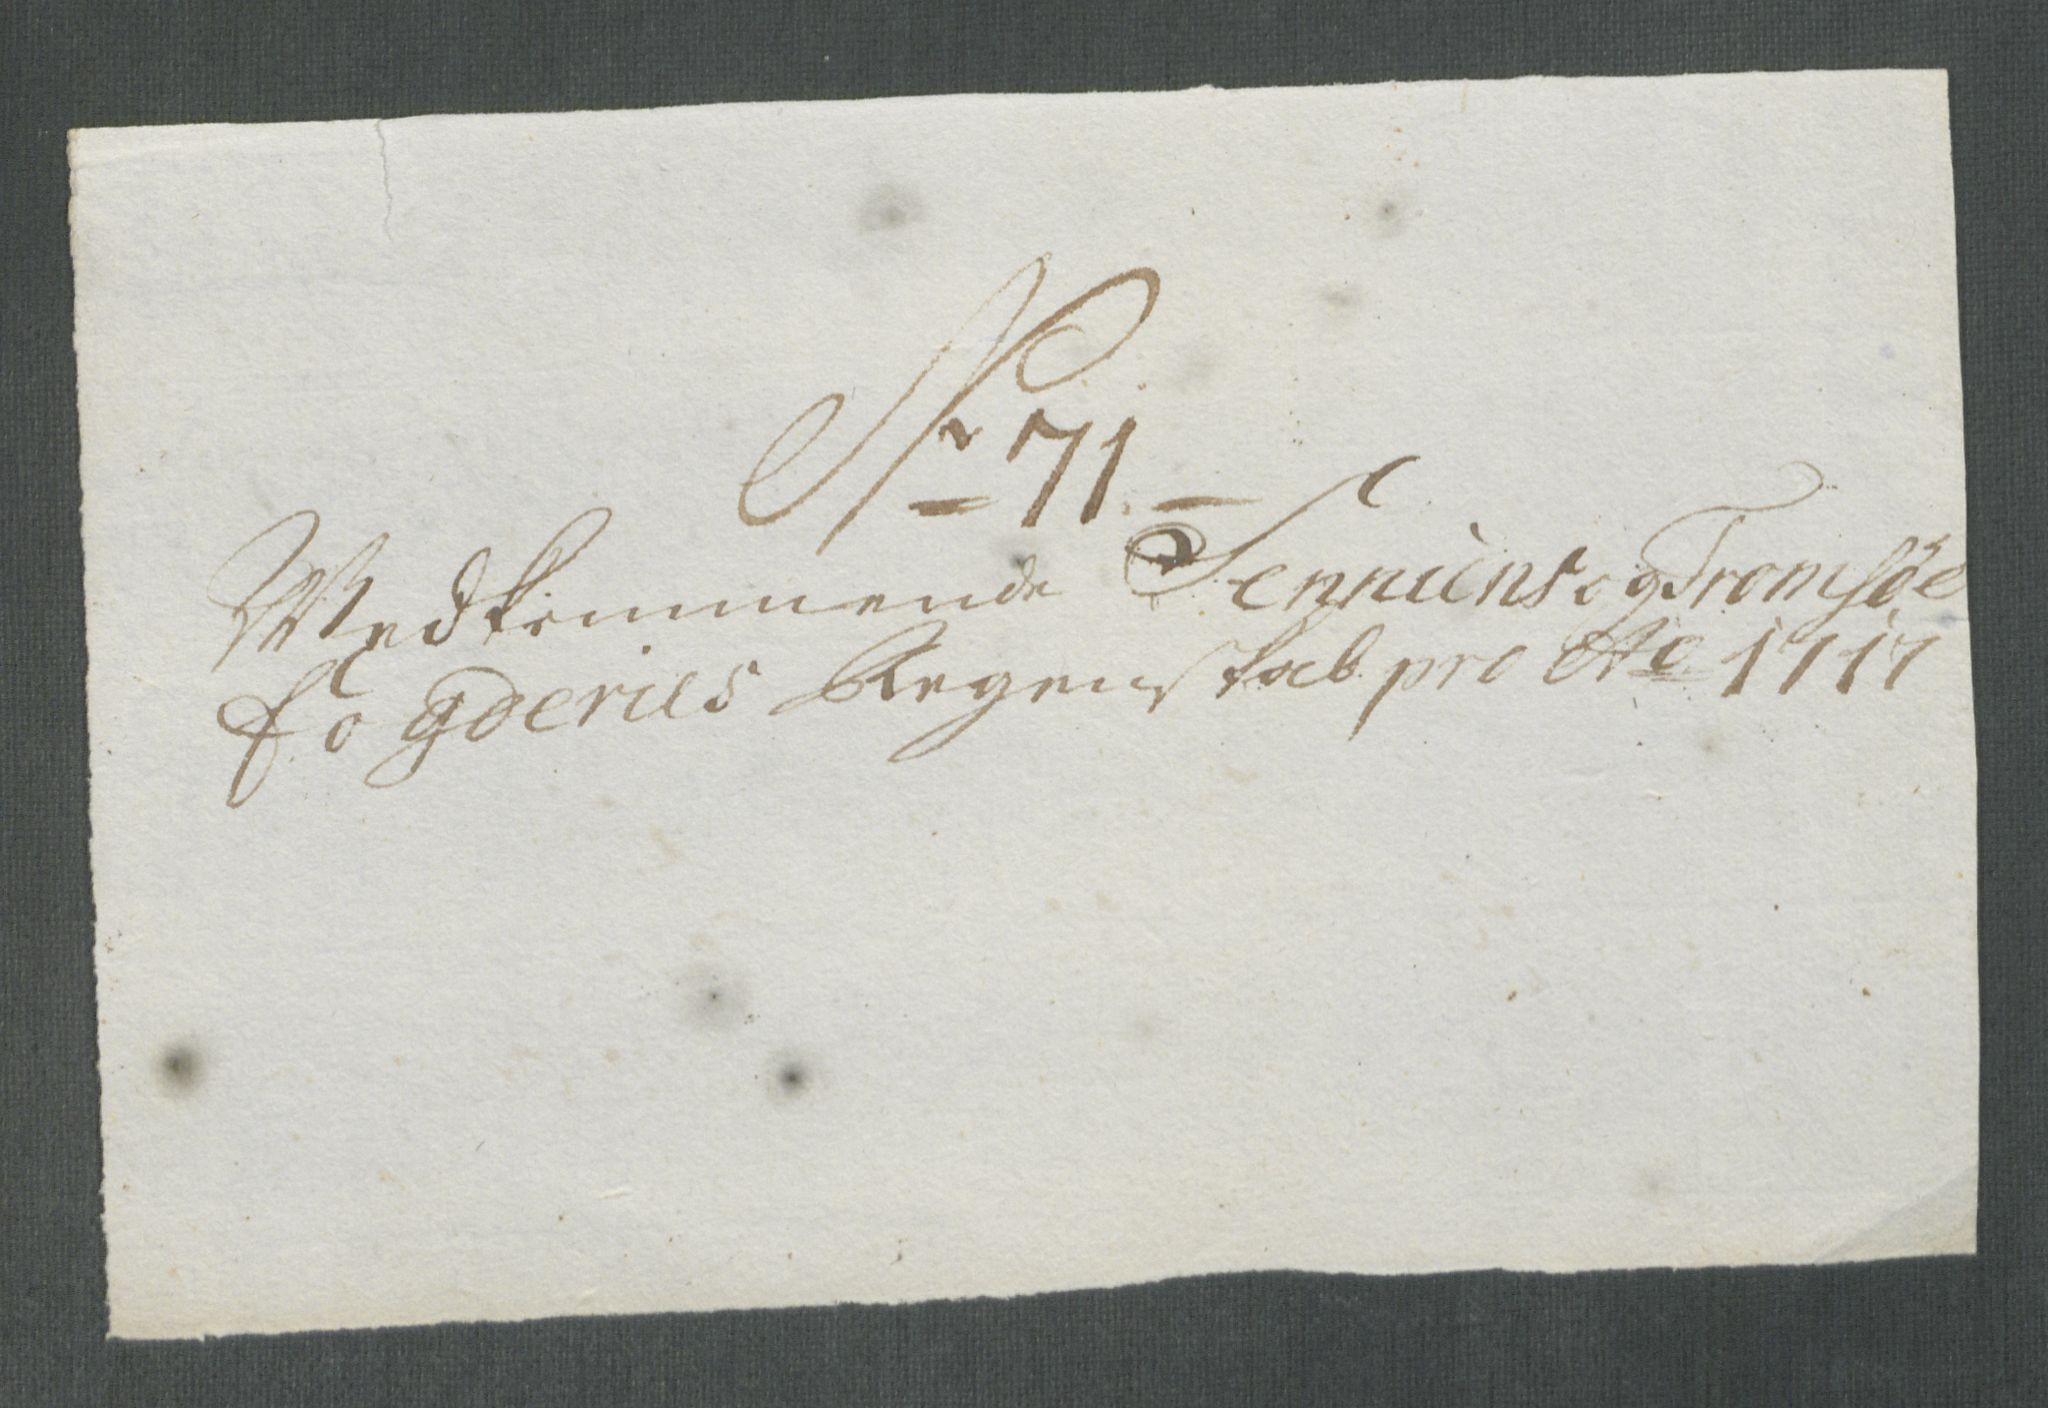 No 71.
Vedkommende Senniens og Tromsøe
Fogderies Regenskab pro Ao 1717